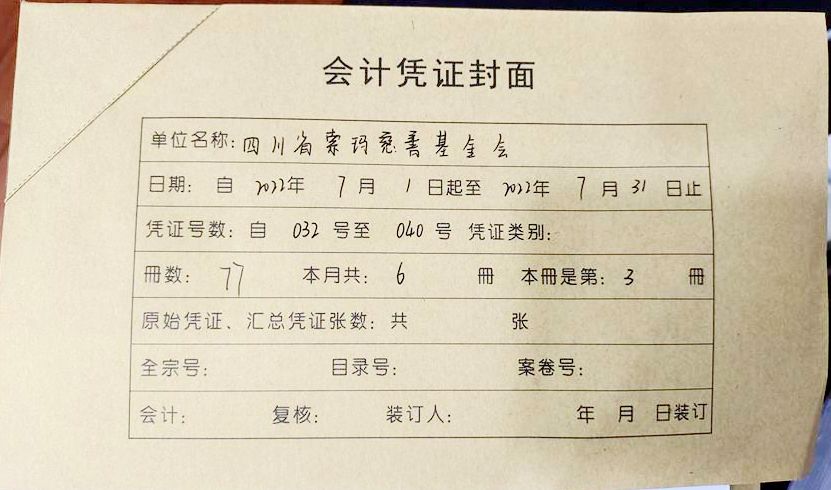 会计凭证封面
单位名称:四川省索玛慈善基金会
日期: 自 2022年 7 月 1 日起至 2022年 7 月 31 日止
凭证号数: 自 032 号至 040 号 凭证类别:
冊数: 77 本月共: 6 冊 本冊是第: 3 冊
原始凭证、汇总凭证张数: 共 张
全宗号: 目录号: 案卷号:
会计: 复核: 装订人: 年 月 日装订